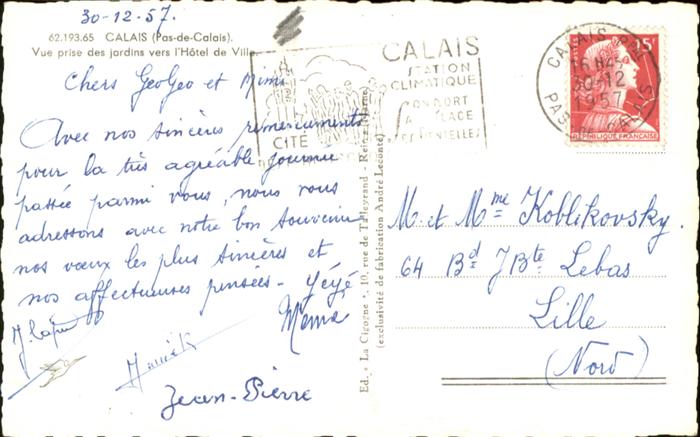 30-12-57.
62.193.65 CALAIS (Pas-de-Calais).
Vue prise des jardins vers l'Hôtel de Ville.
Chers GeoGeo et Mimi
Avec nos sincères remerciements
pour la très agréable journée
passée parmi vous, nous vous
adressons avec notre bon souvenir
nos vœux les plus sincères et
nos affectueuses pensées - Yéyé
Mémé
Jean-Pierre
Ed. "La Cigogne", 10, rue de Talleyrand - Reims (Marne)
(exclusivité de fabrication André Leconte)
CITÉ
CALAIS
STATION
CLIMATIQUE
CONFORT
PLAGE
CALAIS
16 H45
30-12
1957
PAS DE CALAIS
15F
REPUBLIQUE FRANÇAISE
M. et Mme Koblikovsky.
64 Bd JBte Lebas
Lille
(Nord)